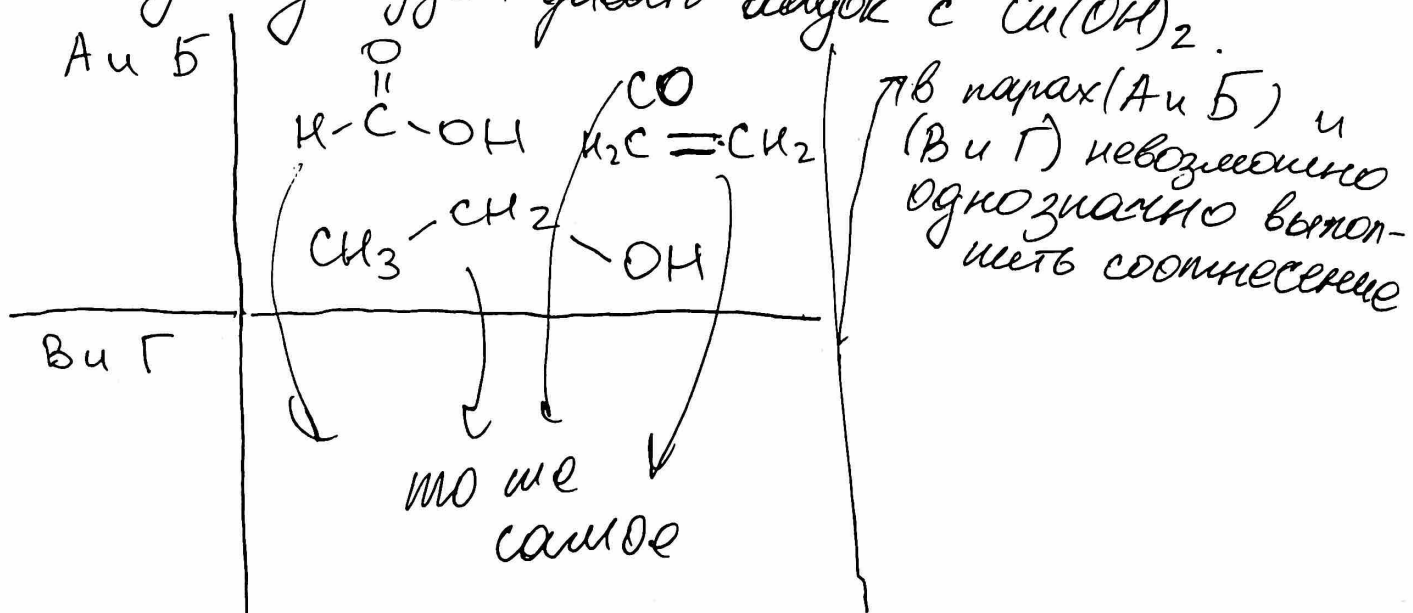 с Cu(OH)₂.
А и Б
O
||
H-C-OH
CO
H₂C=CH₂
CH₃-CH₂-OH
В и Г
то же
самое
в парах (А и Б) и
(В и Г) невозможно
однозначно выпол-
нить соотнесение